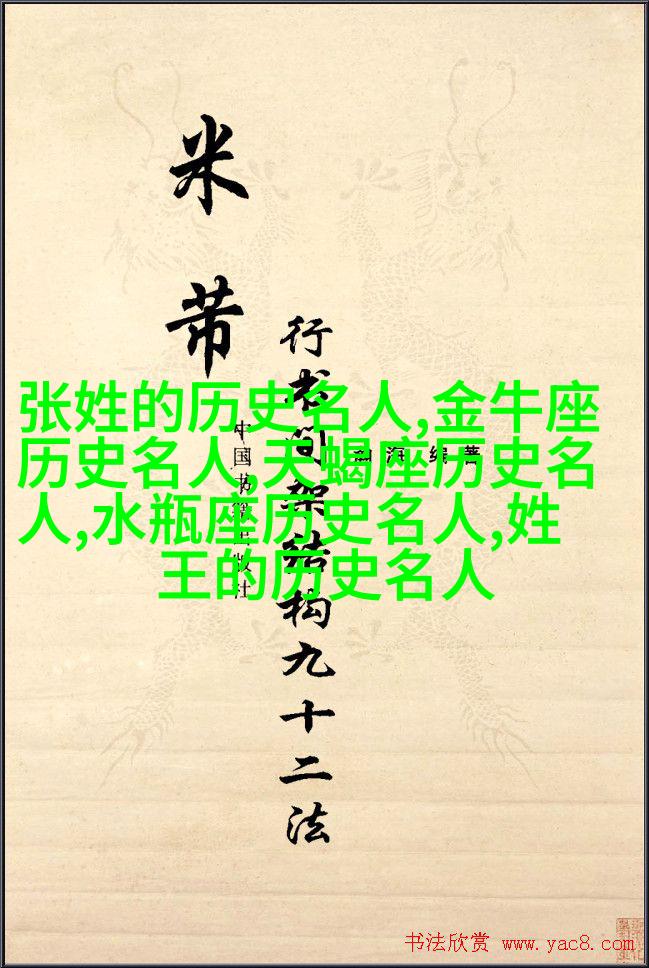 米芾
行书间架结构九十二法
海编著
张姓的历史名人,金牛座
历史名人,天蝎座历史名
人,水瓶座历史名人,姓
王的历史名人
书法欣赏 www.yac8.com